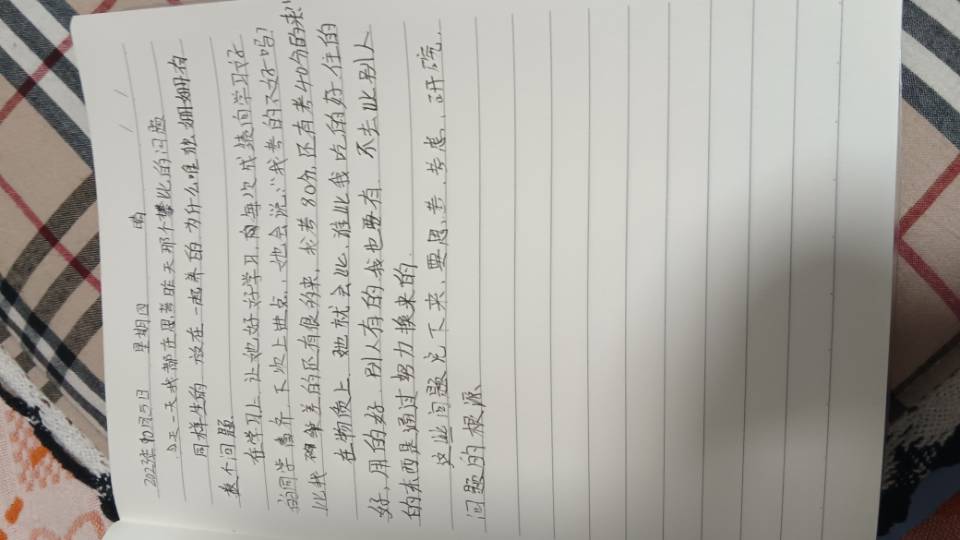 2023年10月5日 星期四 晴
今天一天我都在思考昨天那个攀比的问题
同样生的 放在一起养的 为什么唯独姗姗有
这个问题.
在学习上, 让她好好学习, 每次成绩向学习好
的同学看齐, 下次上进点, 她会说:“我考的不好吗!
比我差的还有很多来, 我考80分, 还有考40分的来!
在物质上, 她就会比, 谁比我吃的好 住的
好, 用的好, 别人有的, 我也要有, 不去比别人
的东西是通过努力换来的.
这些问题先下来, 要思考, 考虑, 研究,
问题的根源.